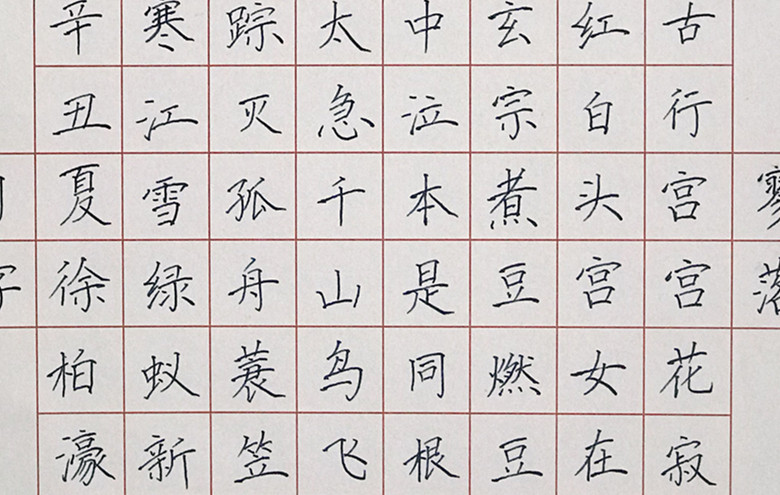 寥落
古行宫宫花寂
红白头宫女在
玄宗煮豆燃豆
中泣本是同根
太急千山鸟飞
踪灭孤舟蓑笠
寒江雪绿蚁新
辛丑夏徐柏濠
字